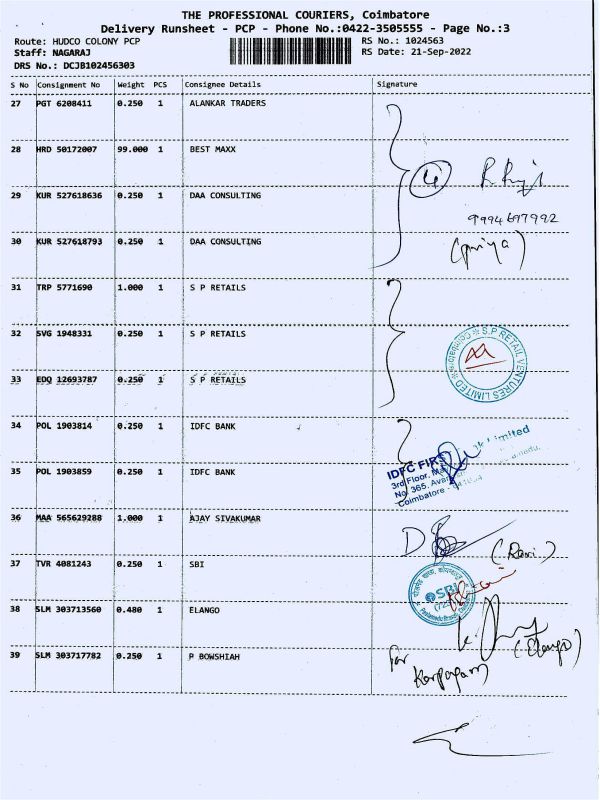 THE PROFESSIONAL COURIERS, Coimbatore
Delivery Runsheet - PCP - Phone No.:0422-3505555 - Page No.:3
Route: HUDCO COLONY PCP RS No.: 1024563
Staff: NAGARAJ RS Date: 21-Sep-2022
DRS No.: DCJB102456303
S No Consignment No Weight PCS Consignee Details Signature
27 PGT 6208411 0.250 1 ALANKAR TRADERS
28 HRD 50172007 99.000 1 BEST MAXX
4
29 KUR 527618636 0.250 1 DAA CONSULTING
9994697992
30 KUR 527618793 0.250 1 DAA CONSULTING
(priya)
31 TRP 5771690 1.000 1 S P RETAILS
32 SVG 1948331 0.250 1 S P RETAILS
S.P RETAIL VENTURES LIMITED
33 EDQ 12693787 0.250 1 S P RETAILS
34 POL 1903814 0.250 1 IDFC BANK
IDFC FIRS k Limited
35 POL 1903859 0.250 1 IDFC BANK
3rd Floor,
No. 365,
Coimbatore -
36 MAA 565629288 1.000 1 AJAY SIVAKUMAR
(Ravi)
37 TVR 4081243 0.250 1 SBI
SBI
38 SLM 303713560 0.480 1 ELANGO
(Elango)
39 SLM 303717782 0.250 1 P BOWSHIAH
for
Karpagam